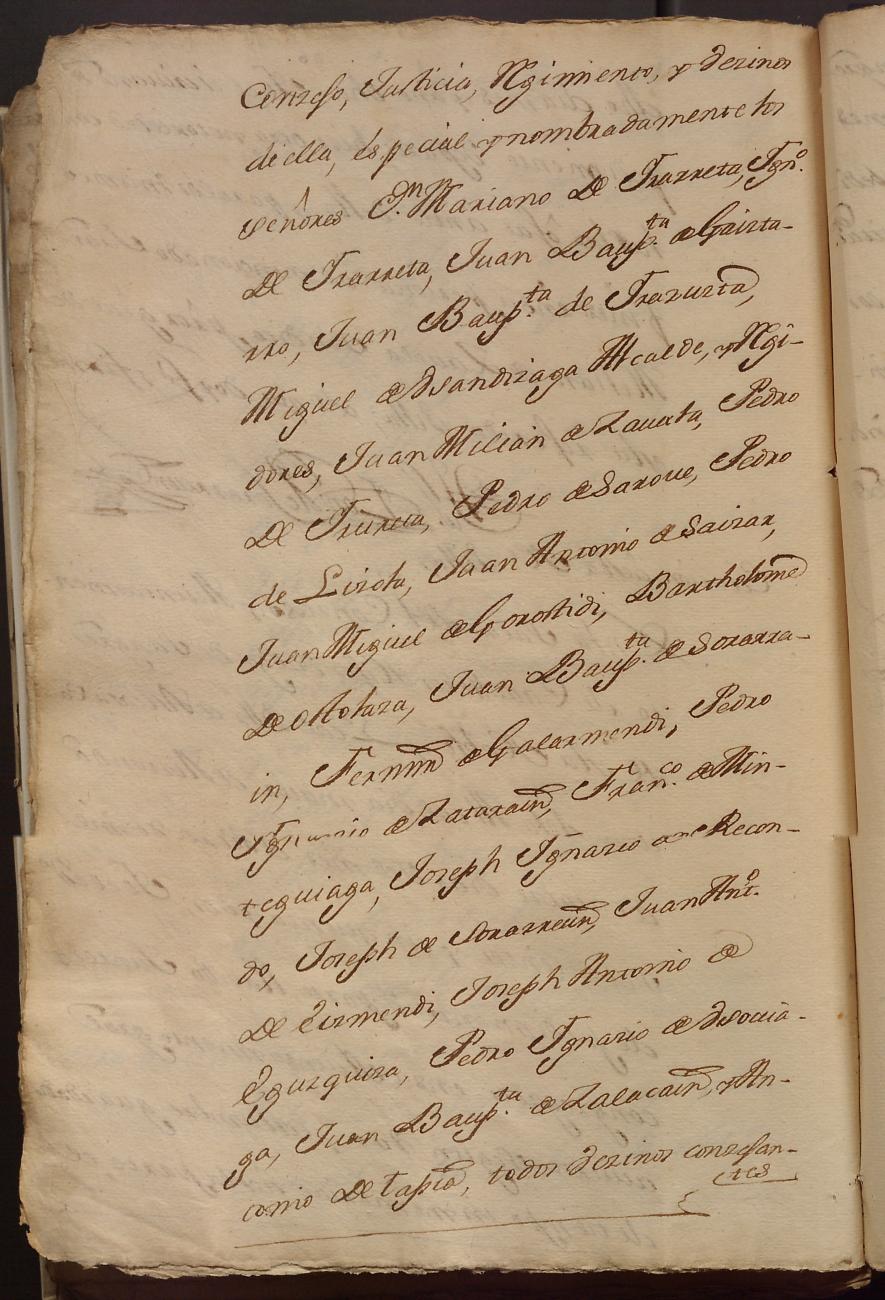 Conzejo, Justicia, Rgimiento, y vezinos
de ella, especial y nombradamente los
señores Dn. Mariano De Irarreta, Ygn.º
De Irarreta, Juan Baup.ta de Gaizta-
rro, Juan Baup.ta de Irazuzta,
Miguel de Usandizaga Alcalde, y Rgi-
dores, Juan Milian de Zavala, Pedro
De Irureta, Pedro de Sarove, Pedro
de Lizola, Juan Antonio de Saizar,
Juan Miguel de Gorostidi, Bartholome
De Ollotara, Juan Baup.ta de Sorarra-
in, Fermin de Galarmendi, Pedro
Ygnacio de Zatarain, Fran.co de Min-
teguiaga, Joseph Ygnazio de Recon-
do, Joseph de Sorarrain, Juan Ant.º
De Eizmendi, Joseph Antonio de
Eguzquiza, Pedro Ygnazio de Usovia-
ga, Juan Baup.ta de Zalacain, y An-
tonio De Tapia, todos vezinos conzejan-
tes